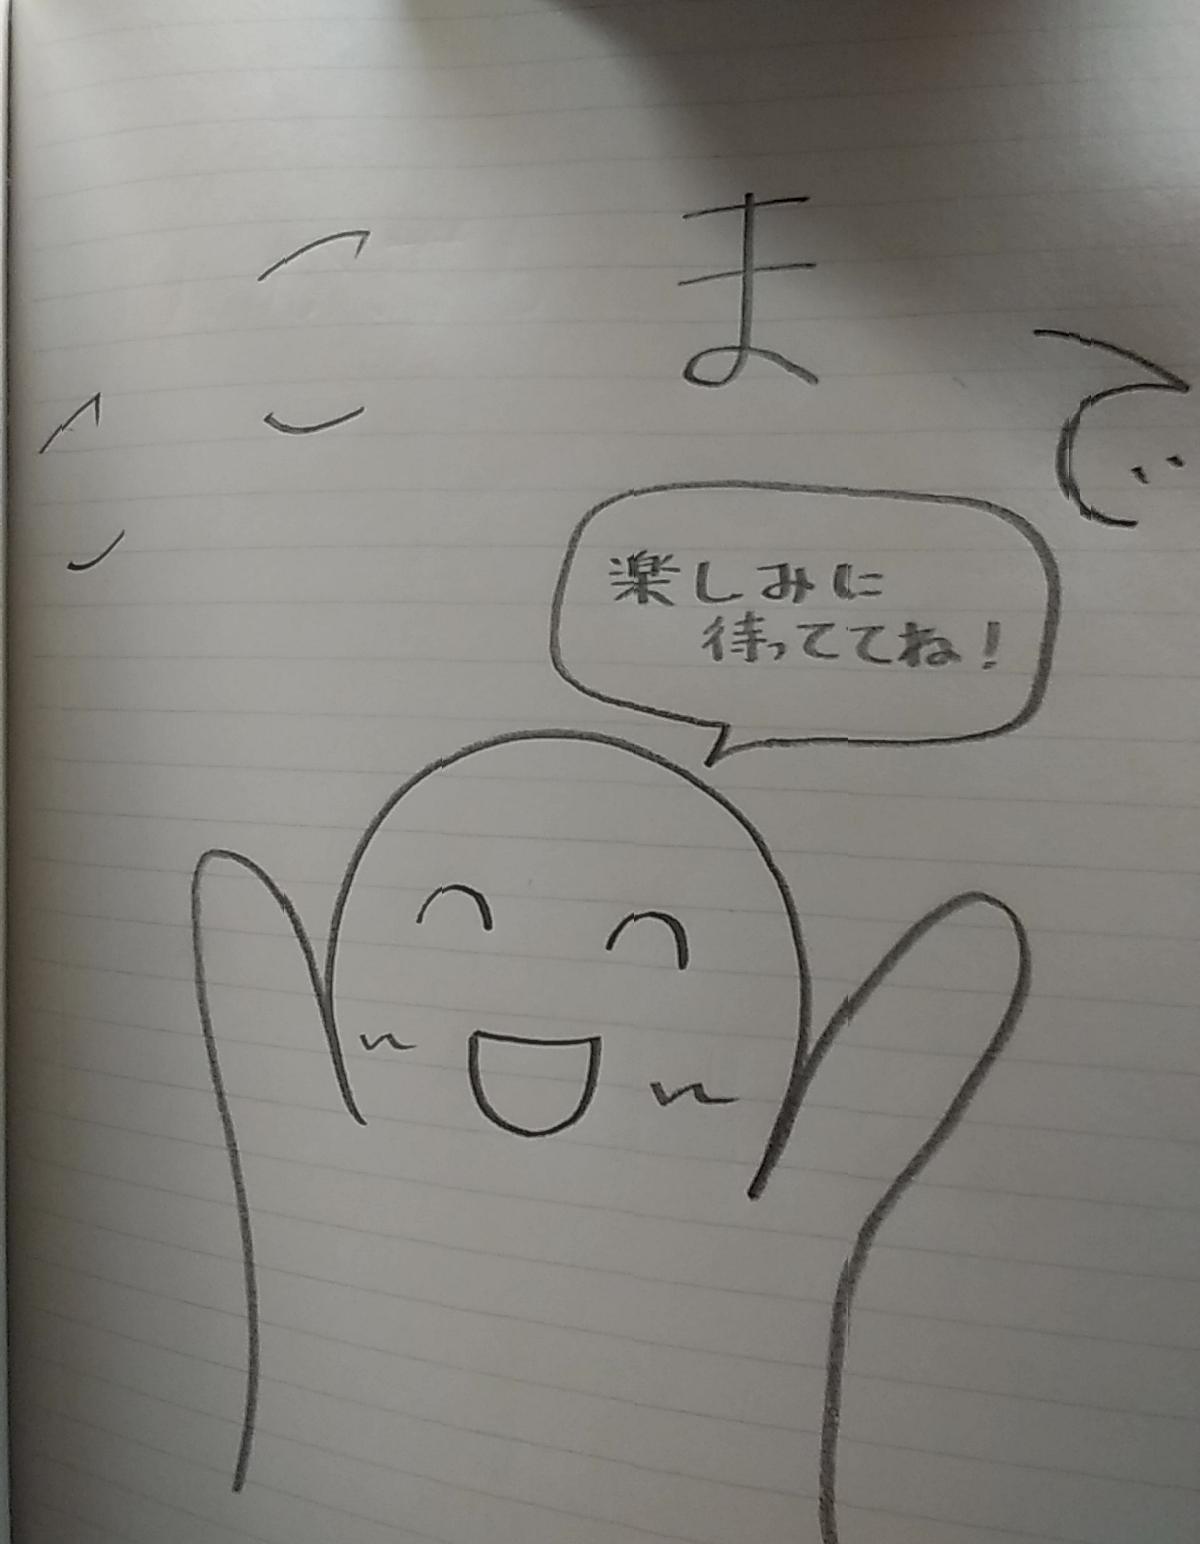 ここまで‥
楽しみに
待っててね！